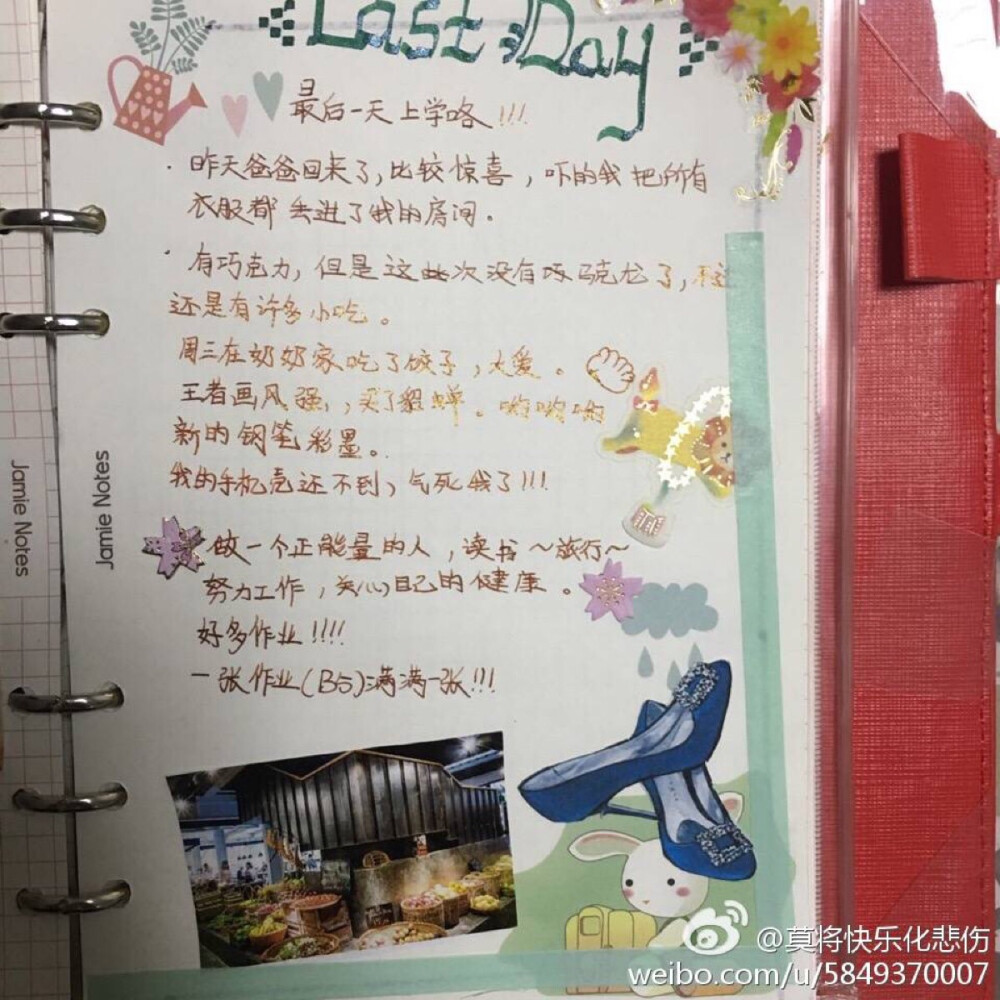 Last Day
最后一天上学咯!!!
· 昨天爸爸回来了,比较惊喜,吓的我把所有
衣服都丢进了我的房间。
· 有巧克力,但是这次没有马克龙了,不过
还是有许多小吃。
周三在奶奶家吃了饺子,大爱。
王者画风强,买了貂蝉。哟哟哟
新的钢笔彩墨。
我的手机壳还不到,气死我了!!!
做一个正能量的人,读书~旅行~
努力工作,关心自己的健康。
好多作业!!!!
一张作业(B5)满满一张!!!
Jamie Notes
Jamie Notes
@莫将快乐化悲伤
weibo.com/u/5849370007